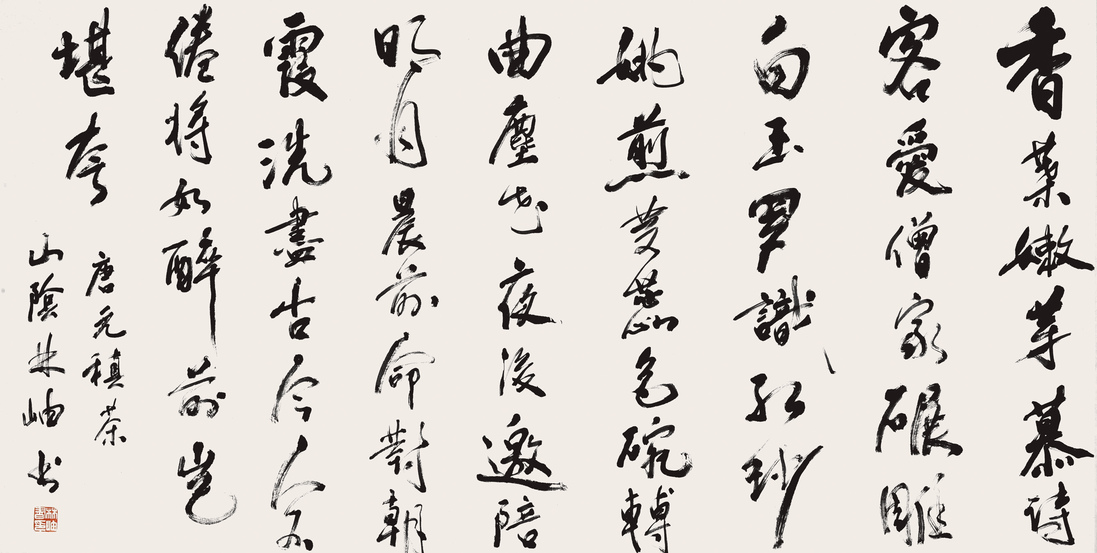 香葉嫩芽慕詩
客愛僧家碾雕
白玉羅識紅紗
銚煎黃蕊色碗轉
曲塵花夜後邀陪
明月晨前命對朝
霞洗盡古今人不
倦將如醉前豈
堪夸
唐元稹茶
山陰林岫書